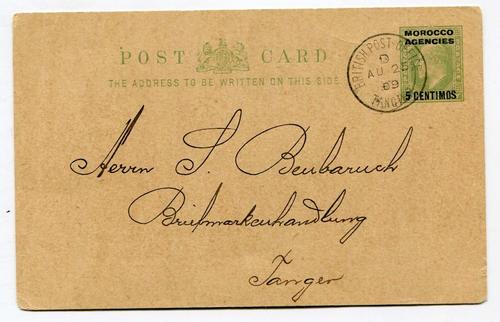 POST CARD
THE ADDRESS TO BE WRITTEN ON THIS SIDE
MOROCCO
AGENCIES
5 CENTIMOS
BRITISH POST-OFFICE
AU 25
09
TANGIER
Herrn S. Benbaruch
Briefmarkenhandlung
Tanger